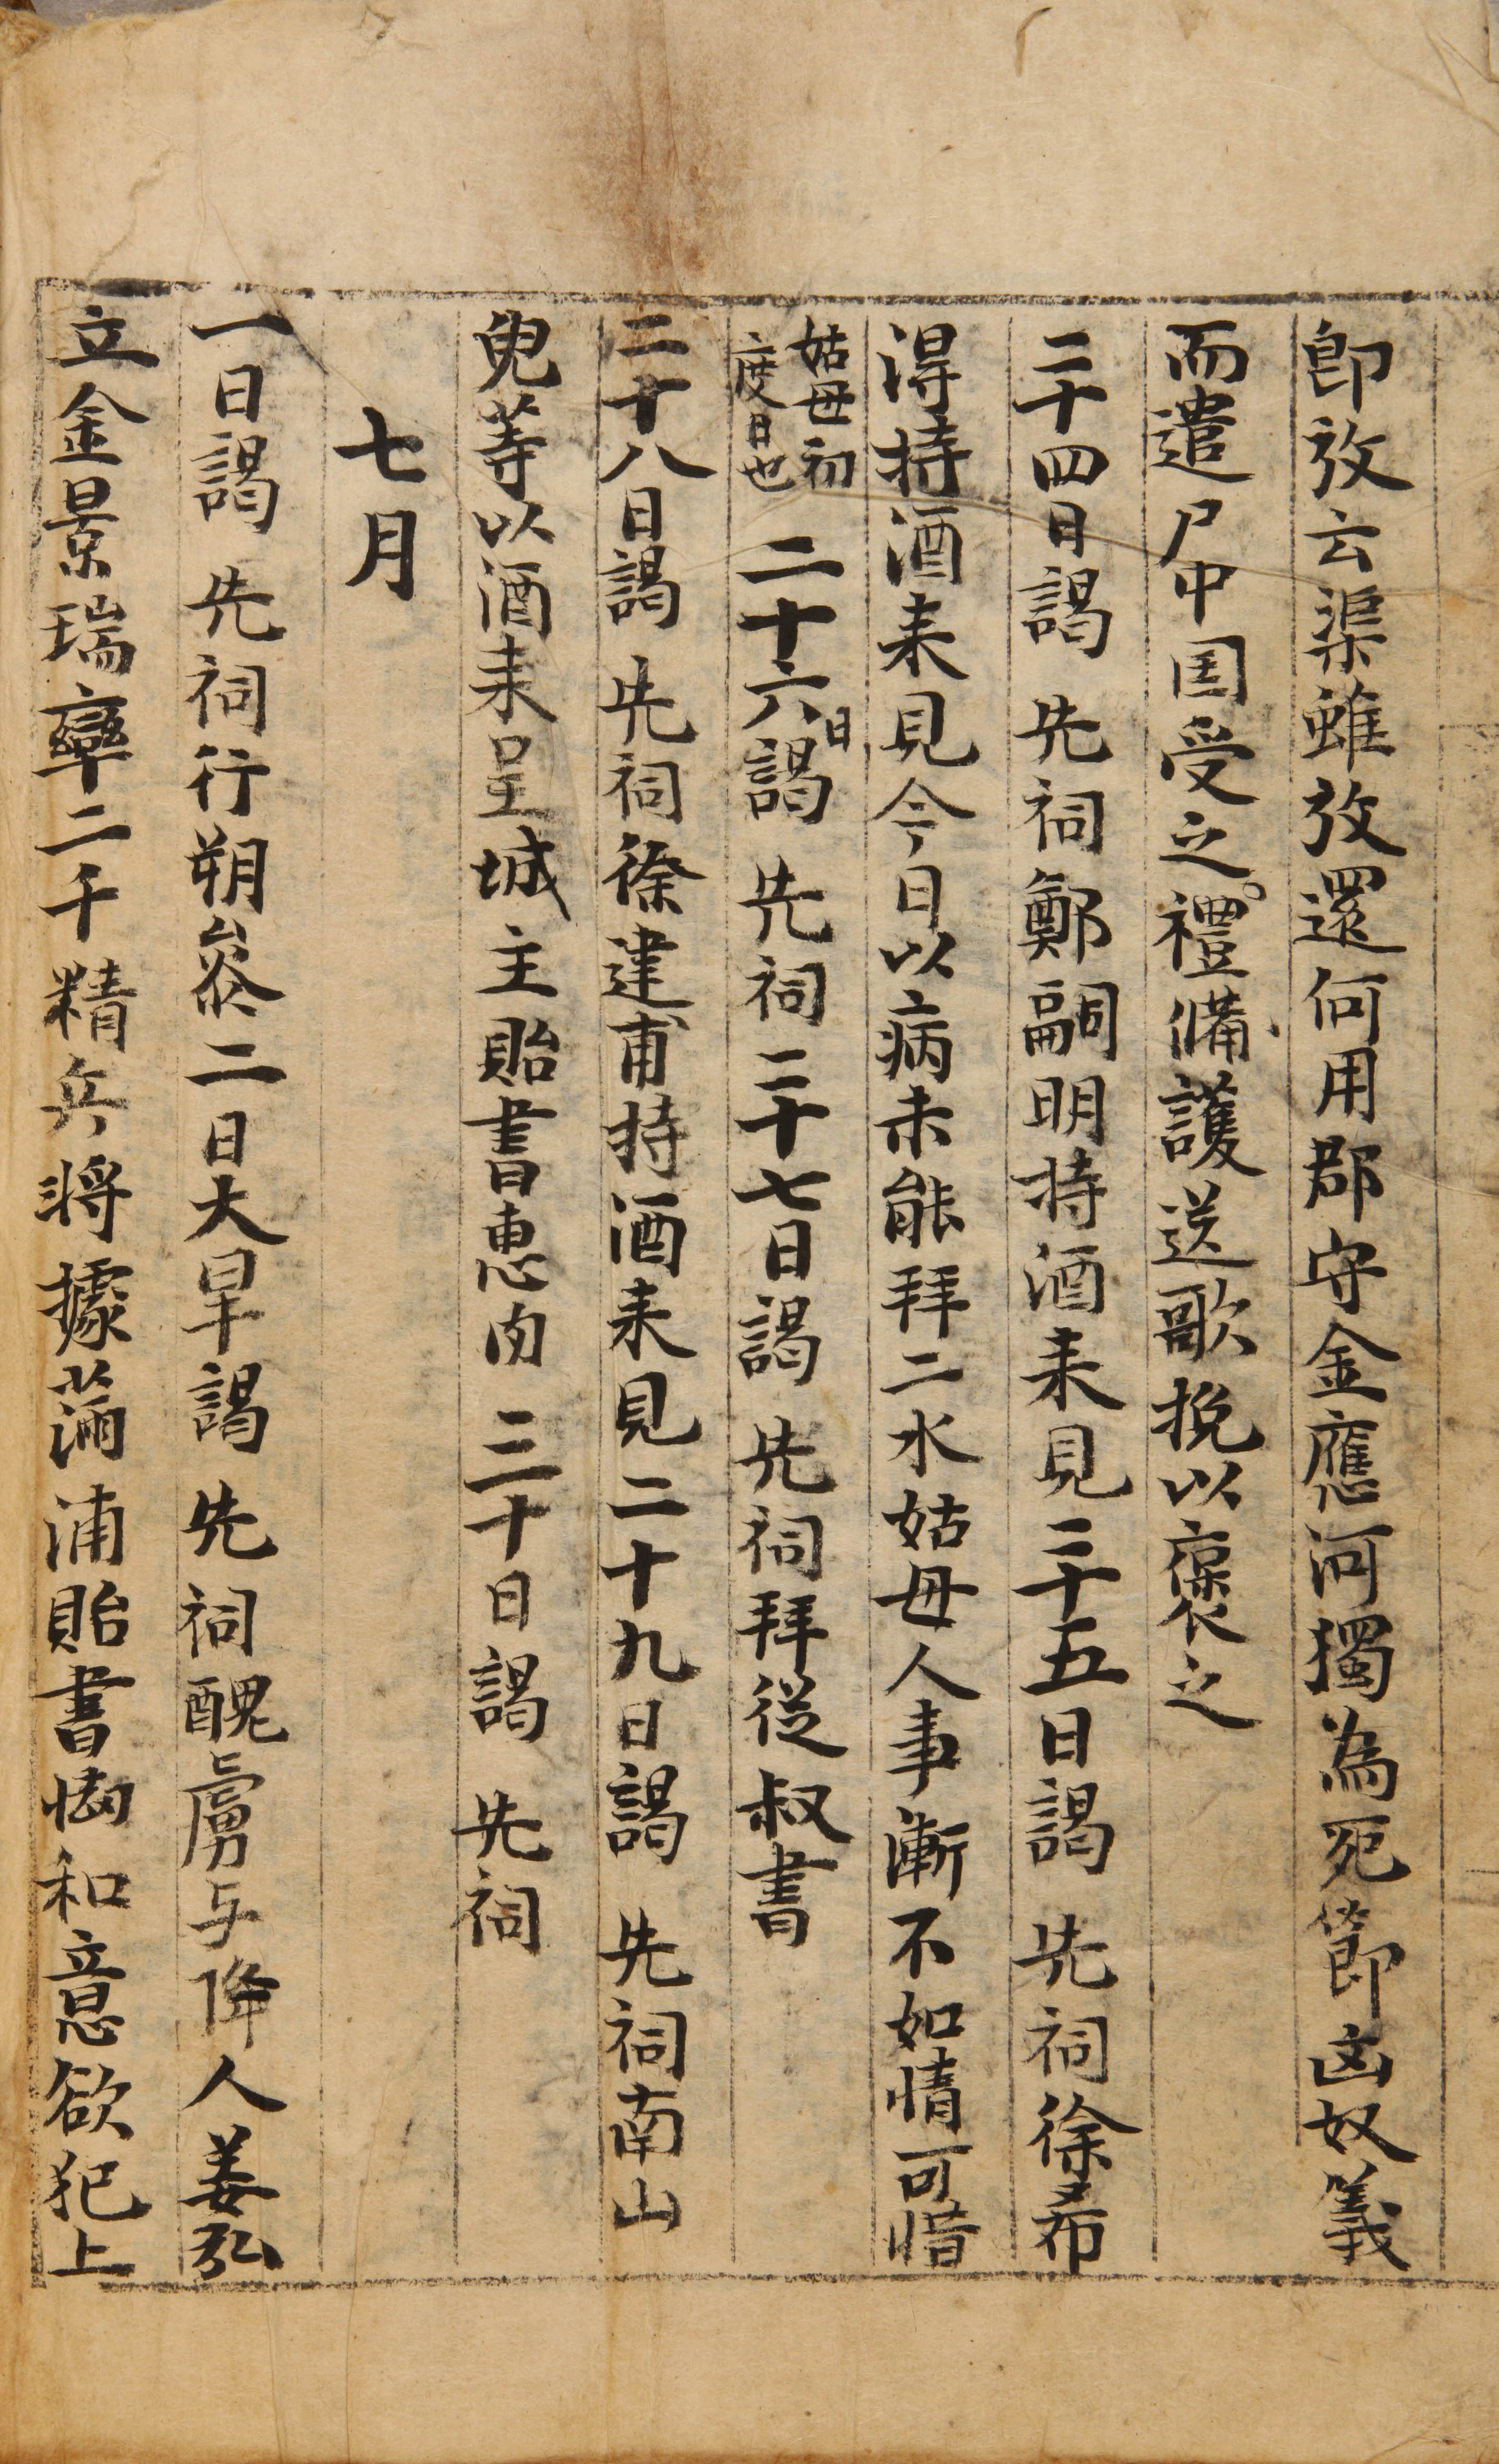 即放云渠雖放還何用郡守金應河獨為死節凶奴義
而遣尸中国受之禮備護送歌挽以褒之
二十四日謁 先祠鄭嗣明持酒来見二十五日謁 先祠徐希
得持酒来見今日以病未能拜二水姑母人事漸不如情可惜
姑母初
度日也
二十六日謁 先祠二十七日謁 先祠拜從叔書
二十八日謁 先祠徐建甫持酒来見二十九日謁 先祠南山
兒等以酒来呈城主貽書惠肉三十日謁 先祠
七月
一日謁 先祠行朔奠二日大旱謁 先祠醜虜与降人姜弘
立金景瑞率二千精兵将據滿浦貽書恸和意欲犯上